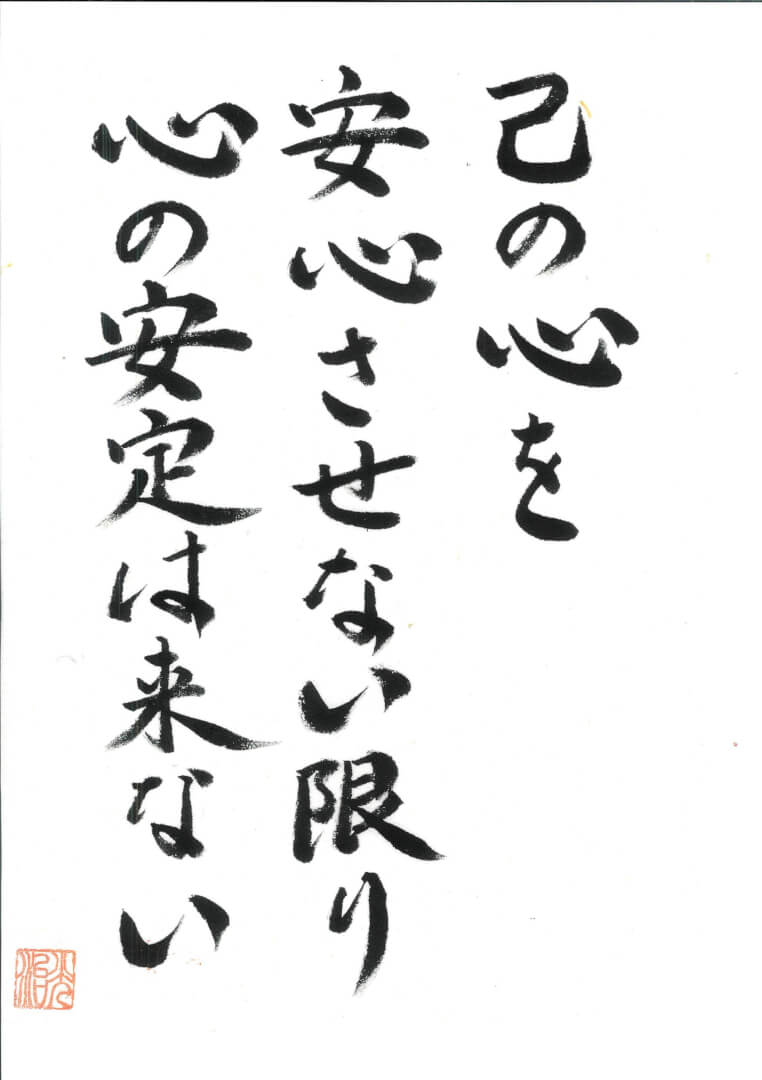 己の心を
安心させない限り
心の安定は来ない